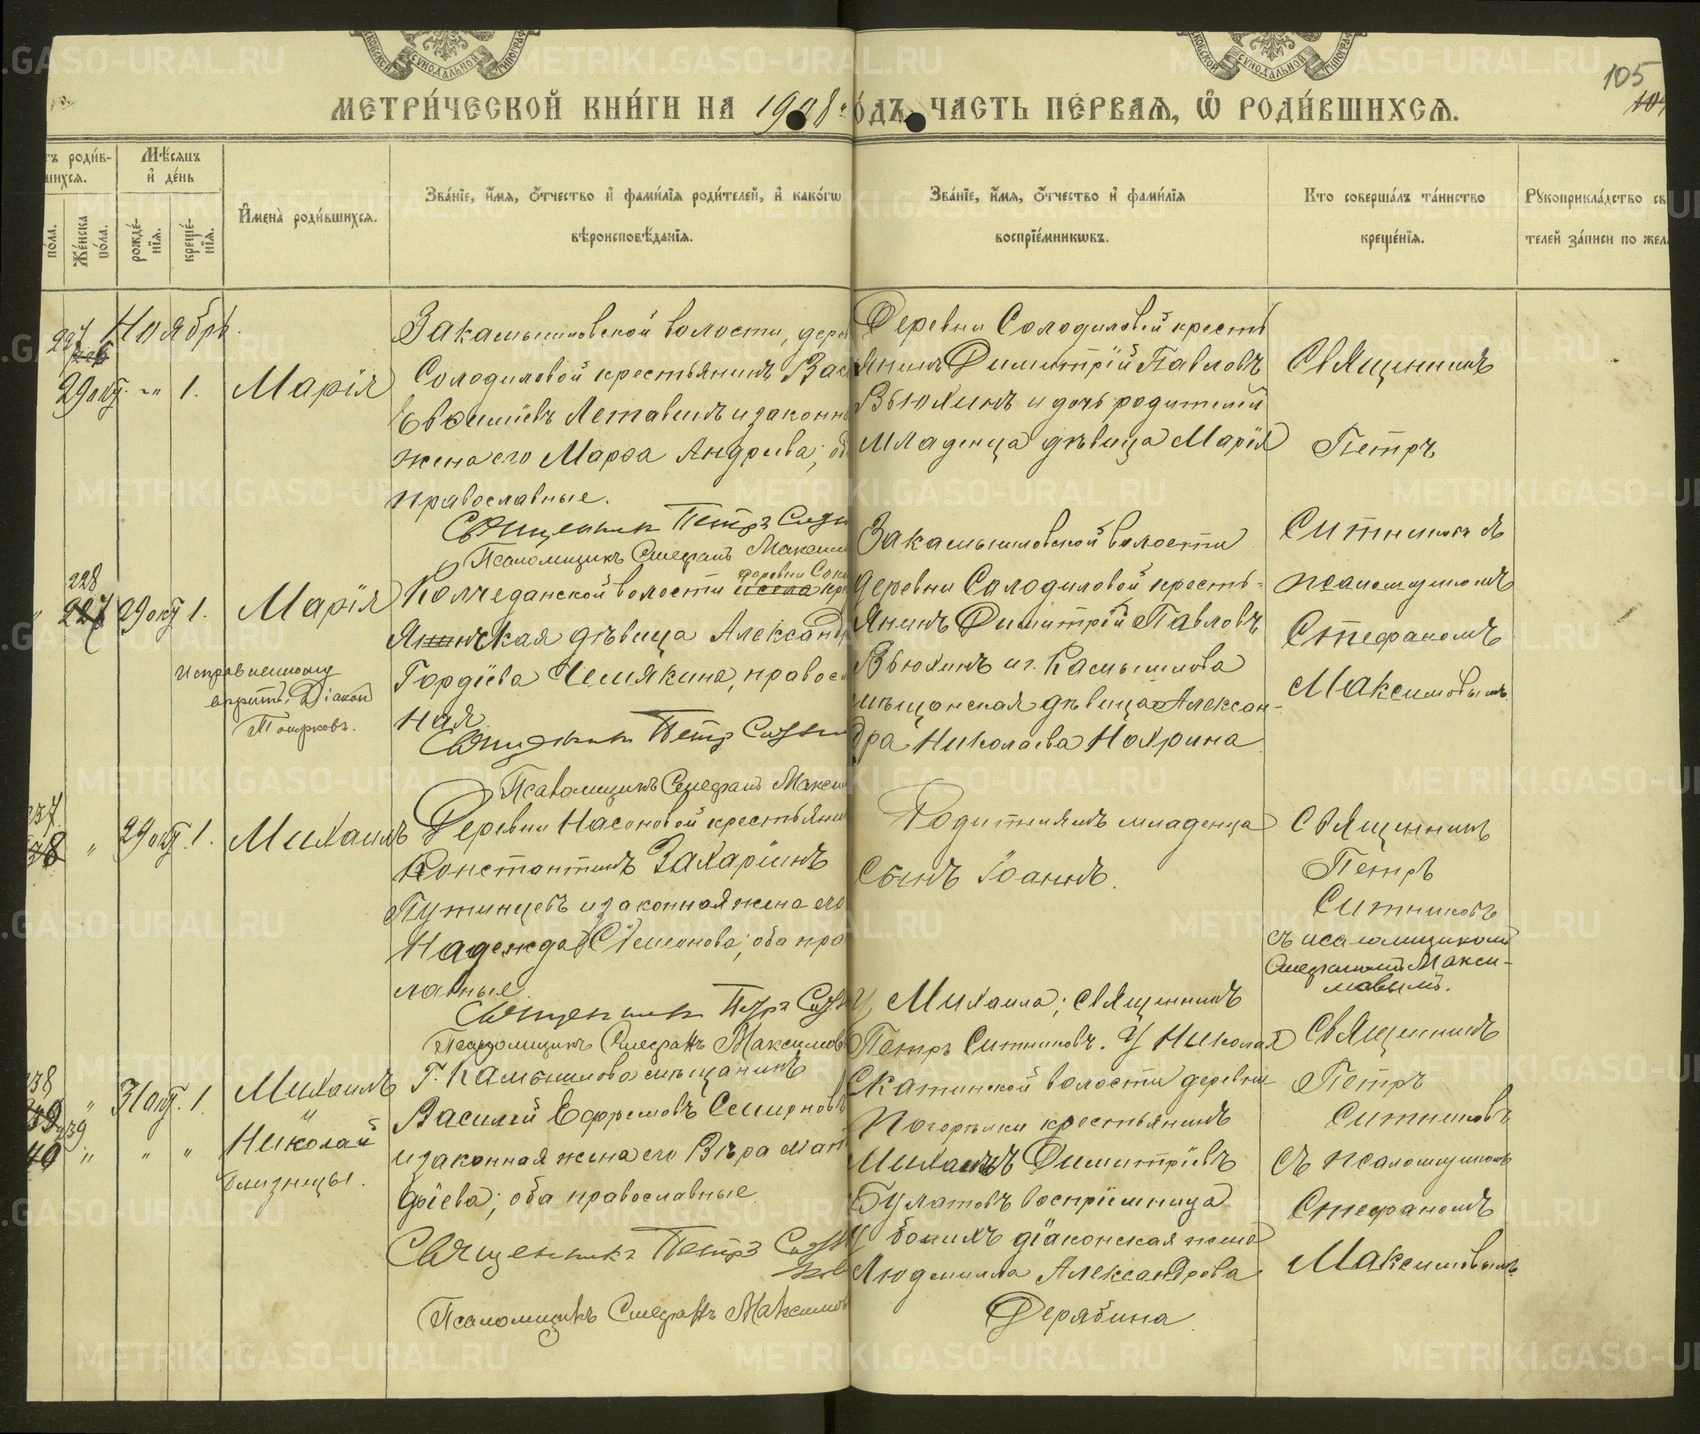 105
МЕТРИ́ЧЕСКОЙ КНИ́ГИ НА 1908 г
ОДЪ, ЧАСТЬ ПЕ́РВАЯ, Ѿ РОДИ́ВШИХСЯ.
тъ роди́в-
шихся.
по́ла.
Же́нска
по́ла.
Мѣ́сяцъ
и҆ де́нь
рожде́-
нїя.
креще́-
нїя.
И҆мена̀ роди́вшихся.
Зва́нїе, и҆́мя, ѻ҆́тчество и҆ фами́лїя роди́телей, и҆ како́гѡ
вѣроисповѣ́данїя.
Зва́нїе, и҆́мя, ѻ҆́тчество и҆ фами́лїя
воспрїе́мникѡвъ.
Кто соверша́лъ та́инство
креще́нїя.
Рꙋкоприкла́дство св
телей за́писи по жел
Ноябрь.
227
29 окт. „ 1.
Марія
Закамышловской волости, дерев
Солодиловой крестьянинъ Вас
Евѳиміевъ Летавинъ и законн
жена его Марѳа Андреева; об
православные.
Священникъ Петръ Ситн
Псаломщикъ Стефанъ Максим
Деревни Солодиловой кресть
янинъ Димитрій Павловъ
Вьюхинъ и дочь родителей
младенца дѣвица Марія
Священникъ
Петръ
Ситниковъ съ
псаломщикомъ
Стефаномъ
Максимовымъ.
228
227 29 окт 1.
Марія
Исправленному
вѣрить. Діаконъ
деревни Соко
Колчеданской волости и села кр
янинъская дѣвица Александр
Гордіева Чемякина, правосл
ная.
Священникъ Петръ Ситни
Псаломщикъ Стефанъ Макси
Закамышловской волости
деревни Солодиловой кресть-
янинъ Димитрій Павловъ
Вьюхинъ и г. Камышлова
мѣщанская дѣвица Алексан-
дра Николаева Нохрина
237.
„ 29 окт. 1.
Михаилъ
Деревни Насоновой крестьяни
Константинъ Захаріинъ
Путинцевъ и законная жена его
Надежда Симеонова; оба пра
лавные.
Священникъ Петръ Ситн
Псаломщикъ Стефанъ Максимов
Родителямъ младенца
сынъ Іоаннъ.
Священникъ
Петръ
Ситниковъ
съ псаломщикомъ
Стефаномъ Макси-
мовымъ.
238
239 „ 31 окт. 1.
Михаилъ
„
239
40 „ „ „
Николай
близнецы.
Г. Камышлова мѣщанинъ
Василій Ефремовъ Смирновъ
и законная жена его Вѣра Мат
фіева; оба православные.
Священникъ Петръ Ситн
ков
Псаломщикъ Стефанъ Максимов
У Михаила; священникъ
Петръ Ситниковъ. У Николая
Скатинской волости деревни
Погорѣлки крестьянинъ
Михаилъ Димитріевъ
Булатовъ воспріемница
у боихъ діаконская жена
Людмилла Александрова
Дерябина
Священникъ
Петръ
Ситниковъ
съ псаломщикомъ
Стефаномъ
Максимовымъ